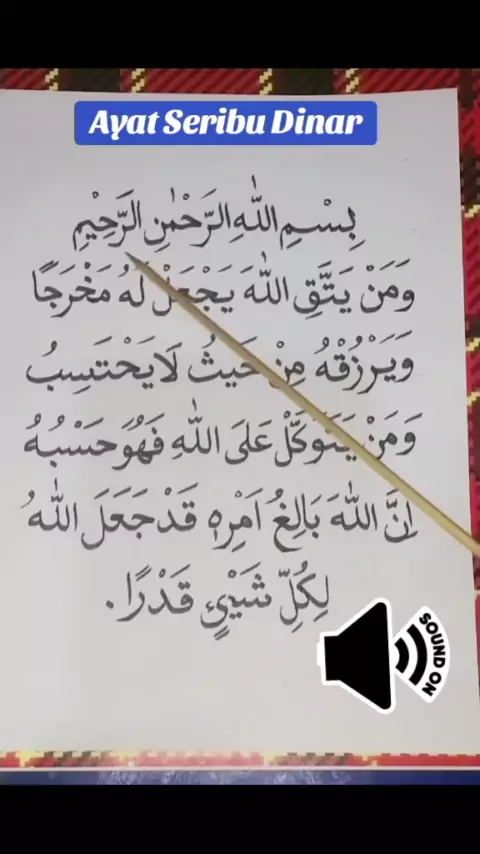 Ayat Seribu Dinar
بِسْمِ اللّٰهِ الرَّحْمٰنِ الرَّحِيْمِ
وَمَنْ يَتَّقِ اللّٰهَ يَجْعَلْ لَهُ مَخْرَجًا
وَيَرْزُقْهُ مِنْ حَيْثُ لَا يَحْتَسِبُ
وَمَنْ يَتَوَكَّلْ عَلَى اللّٰهِ فَهُوَ حَسْبُهُ
اِنَّ اللّٰهَ بَالِغُ اَمْرِهٖ قَدْ جَعَلَ اللّٰهُ
لِكُلِّ شَيْئٍ قَدْرًا.
SOUND ON